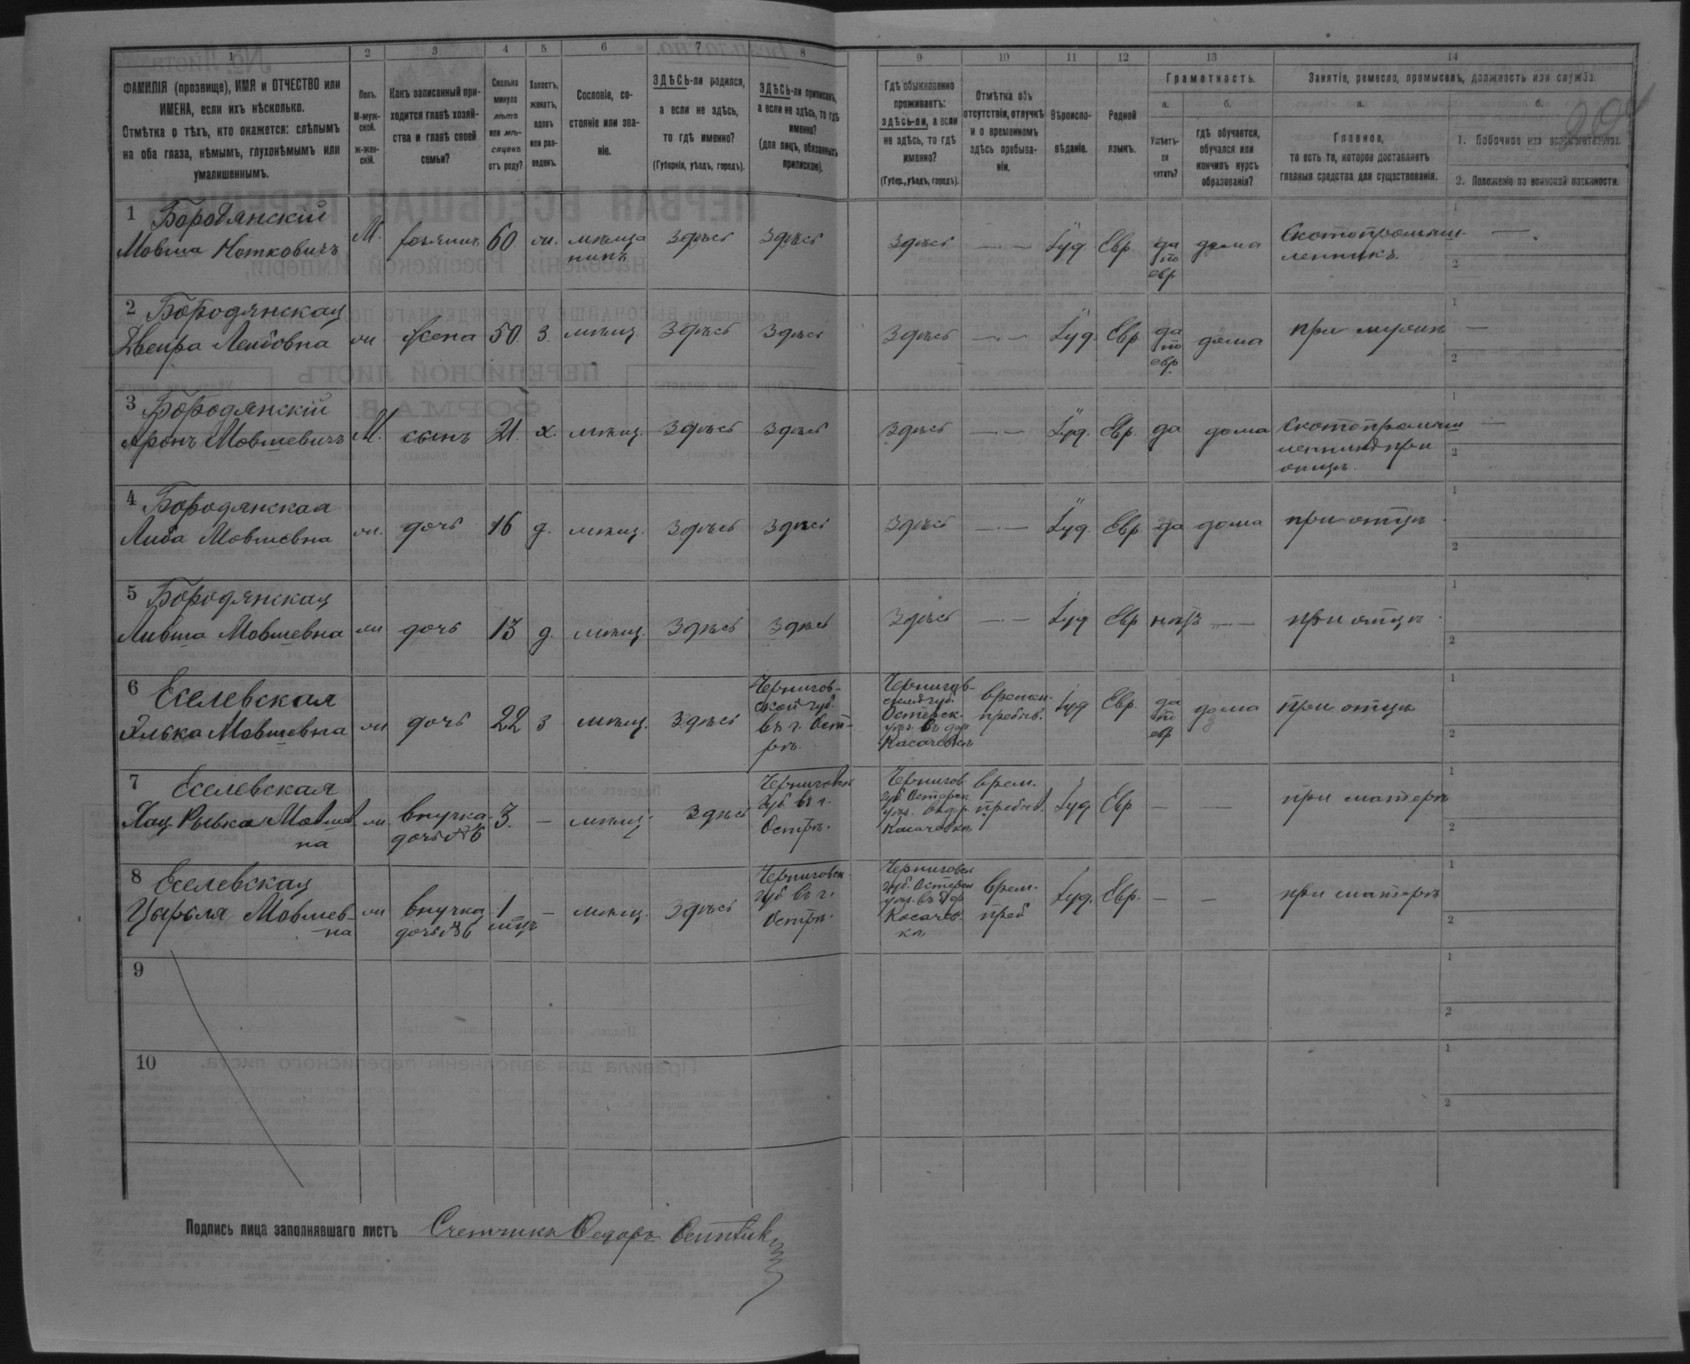 1 2 3 4 5 6 7 8 9 10 11 12 13 14
ФАМИЛІЯ (прозвище), ИМЯ и ОТЧЕСТВО или
ИМЕНА, если ихъ нѣсколько.
Отмѣтка о тѣхъ, кто окажется: слѣпымъ
на оба глаза, нѣмымъ, глухонѣмымъ или
умалишеннымъ.
Полъ.
М-муж-
ской.
ж-жен-
скій.
Какъ записанный при-
ходится главѣ хозяй-
ства и главѣ своей
семьи?
Сколько
минуло
лѣтъ
или мѣ-
сяцевъ
отъ роду?
Холостъ,
женатъ,
вдовъ
или раз-
веденъ.
Сословіе, со-
стояніе или зва-
ніе.
ЗДѢСЬ-ли родился,
а если не здѣсь,
то гдѣ именно?
(Губернія, уѣздъ, городъ).
ЗДѢСЬ-ли приписанъ,
а если не здѣсь, то гдѣ
именно?
(для лицъ, обязанныхъ
припискою).
Гдѣ обыкновенно
проживаетъ:
здѣсь-ли, а если
не здѣсь, то гдѣ
именно?
(Губер., уѣздъ, городъ).
Отмѣтка объ
отсутствіи, отлучкѣ
и о временномъ
здѣсь пребыва-
ніи.
Вѣроиспо-
вѣданіе.
Родной
языкъ.
Грамотность.
а.
Умѣетъ-
ли
читать?
б.
гдѣ обучается,
обучался или
кончилъ курсъ
образованія?
Занятіе, ремесло, промыселъ, должность или служба.
а.
Главное,
то есть то, которое доставляетъ
главныя средства для существованія.
б.
1. Побочное или вспомогательное.
2. Положеніе по воинской повинности.
1 Бородянскій
Мовша Ноткович М. хозяинъ 60 ж. мѣща
нинъ Здѣсь Здѣсь Здѣсь — Іуд Евр да
по
евр дома Скотопромыш-
ленникъ —
2 Бородянская
Двейра Лейбовна ж жена 50 з. мѣщ. Здѣсь Здѣсь Здѣсь — Іуд. Евр да
по
евр. дома при мужѣ —
3 Бородянскій
Аронъ Мовшевичъ М. сынъ 21. х. мѣщ. Здѣсь Здѣсь Здѣсь — Іуд. Евр. да дома Скотопромыш
при
отцѣ —
4 Бородянская
Либа Мовшевна ж. дочь 16 д. мѣщ. Здѣсь Здѣсь Здѣсь — Іуд. Евр да дома при отцѣ
5 Бородянская
Лившa Мовшевна ж дочь 13 д. мѣщ. Здѣсь Здѣсь Здѣсь — Іуд Евр нѣтъ — при отцѣ
6 Еселевская
Элька Мовшевна ж дочь 22 з мѣщ. Здѣсь Чернигов-
ской губ.
въ г. Ост-
рѣ. Чернигов-
ской губ.
Остерск.
уѣз. въ дер
Касачовкѣ времен.
пребыв. Іуд Евр. да
по
евр дома при отцѣ
7 Еселевская
Хая Рывка ж внучка
дочь №6 3. — мѣщ. Здѣсь
Губ въ г.
Острѣ. Чернигов.
Губ Остерск
уѣз. въ д.
Касачовкѣ врем.
пребыв. Іуд Евр — — при матери
8 Еселевская
Цырля Мовшев-
на ж внучка
дочь №6 1
мѣц — мѣщ. Здѣсь Черниговск
Губ въ г.
Острѣ. Черниговск
Губ. Остерск
уѣз. въ дер
Косачов-
кѣ врем.
преб Іуд. Евр. — — при матери
9
10
Подпись лица заполнявшаго листъ Счетчикъ Федоръ